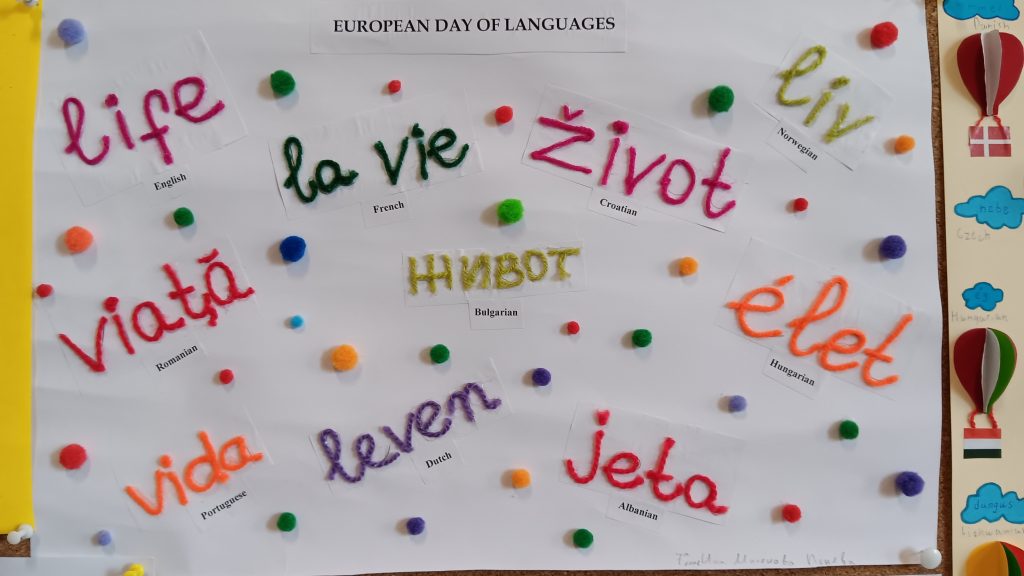 EUROPEAN DAY OF LANGUAGES
life
English
la vie
French
život
Croatian
liv
Norwegian
viaţă
Romanian
живот
Bulgarian
élet
Hungarian
vida
Portuguese
leven
Dutch
jeta
Albanian
Danish
nebe
Czech
ég
Hungarian
dangus